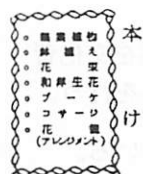 本
け
観葉植物
鉢植え
花束
和洋生花
ブーケ
コサージ
花籠
(アレンジメント)